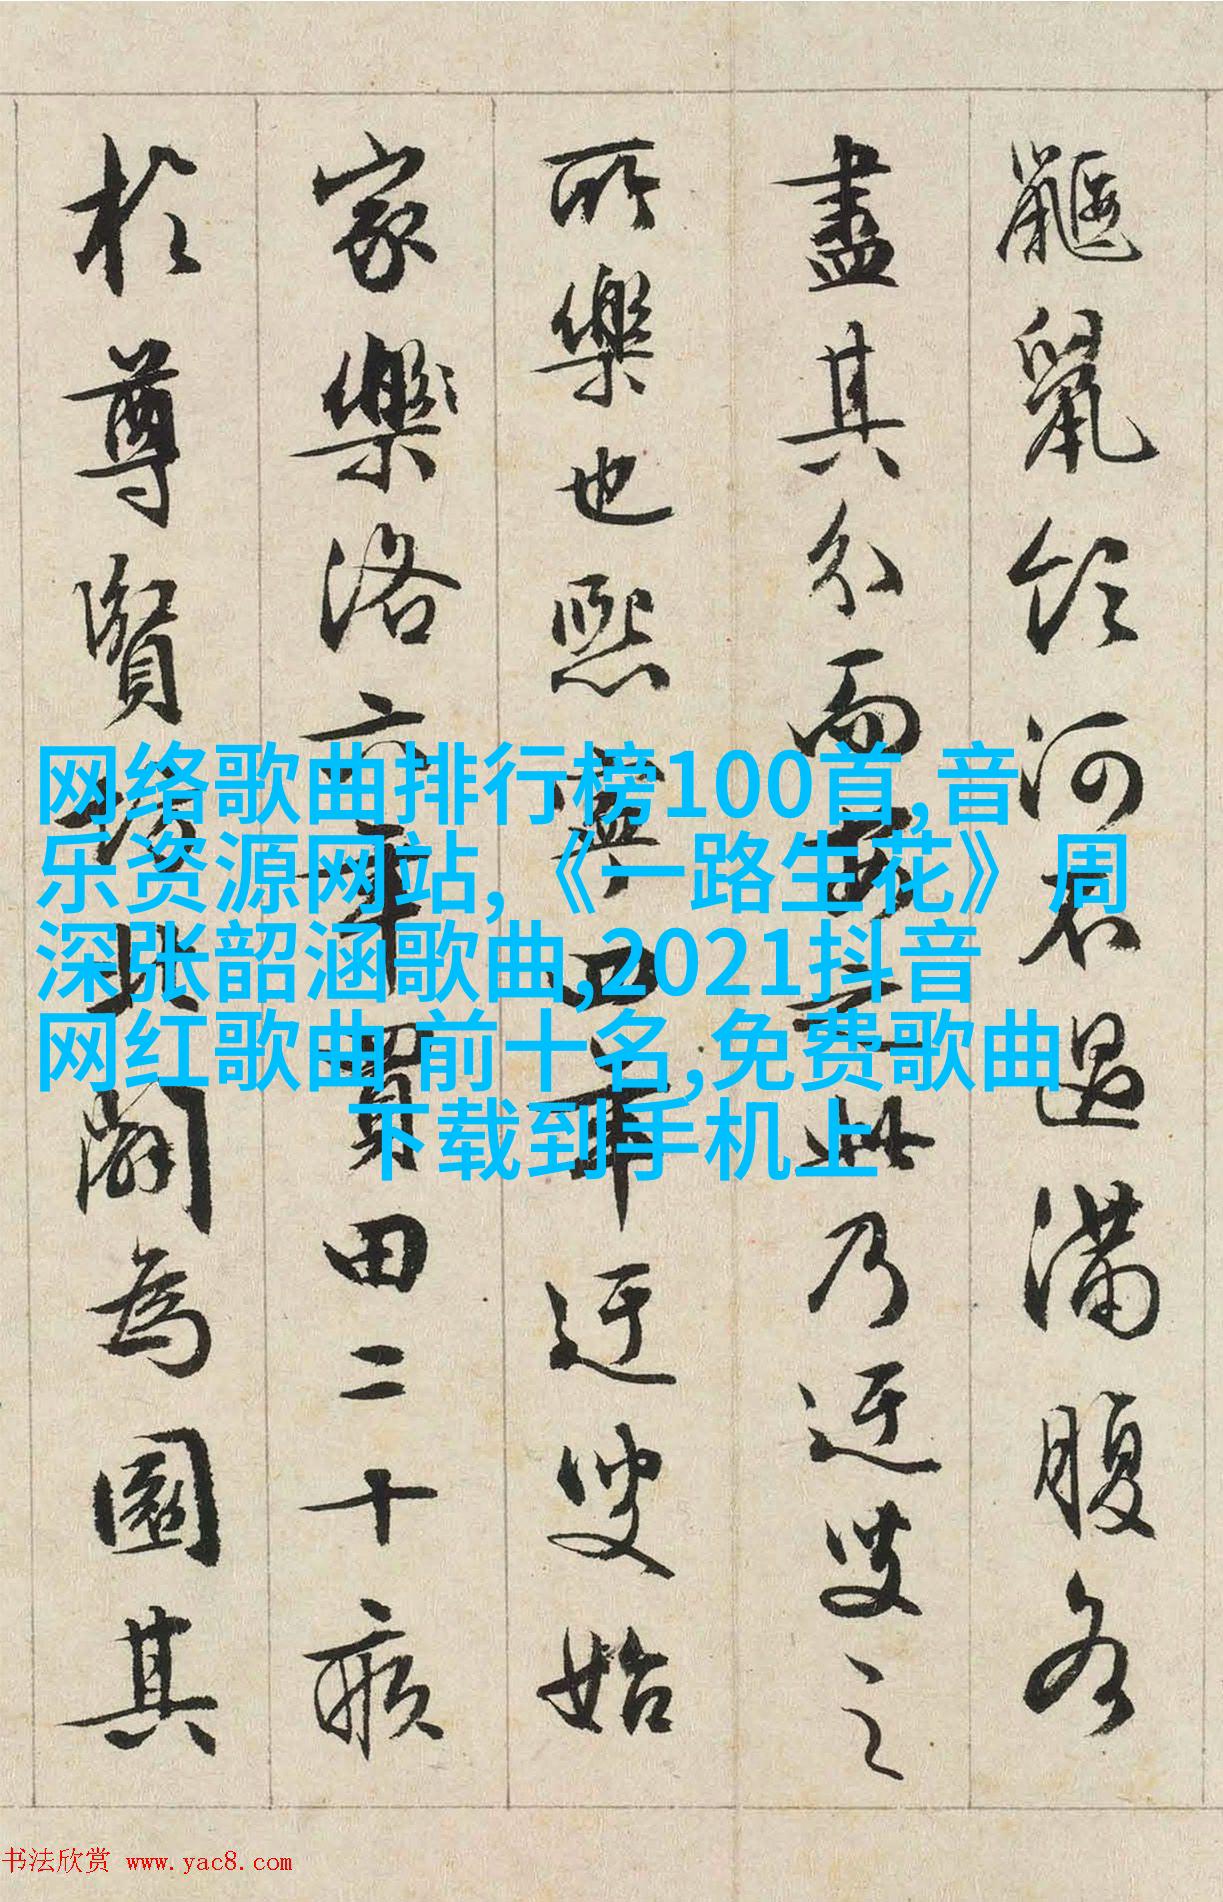 鼴鼠飲河不過滿腹各
盡其分而安之此乃迂叟之
所樂也熙寧四年迂叟始
家樂洛六年買田二十畝
於尊賢坊北闢為園其
网络歌曲排行榜100首,音
乐资源网站,《一路生花》周
深张韶涵歌曲,2021抖音
网红歌曲 前十名,免费歌曲
下载到手机上
书法欣赏 www.yac8.com